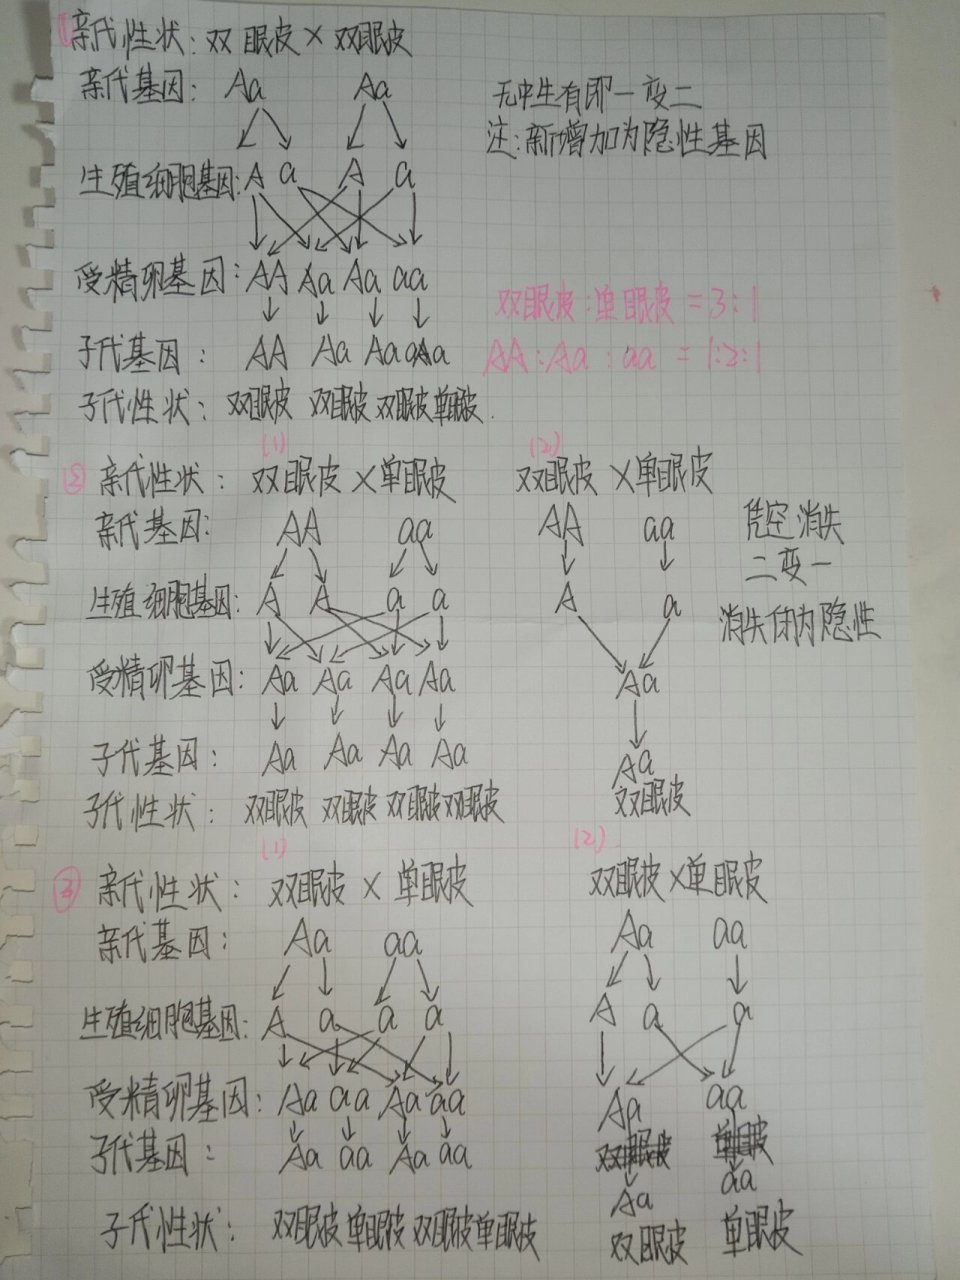 ① 亲代性状：双眼皮×双眼皮
亲代基因：Aa Aa
无中生有即一变二
注：新增加为隐性基因
生殖细胞基因：A a A a
受精卵基因：AA Aa Aa aa
子代基因：AA Aa Aa aa
子代性状：双眼皮 双眼皮 双眼皮 单眼皮.
双眼皮：单眼皮=3：1
AA：Aa：aa=1:2:1
② 亲代性状：
(1)
双眼皮×单眼皮
亲代基因：AA aa
生殖细胞基因：A A a a
受精卵基因：Aa Aa Aa Aa
子代基因：Aa Aa Aa Aa
子代性状：双眼皮 双眼皮 双眼皮 双眼皮
(2)
双眼皮×单眼皮
AA aa
A a
Aa
Aa
双眼皮
凭空消失
二变一
消失的为隐性
③ 亲代性状：
(1)
双眼皮×单眼皮
亲代基因：Aa aa
生殖细胞基因：A a a a
受精卵基因：Aa aa Aa aa
子代基因：Aa aa Aa aa
子代性状：双眼皮 单眼皮 双眼皮 单眼皮
(2).
双眼皮×单眼皮
Aa aa
A a a
Aa aa
Aa aa
双眼皮 单眼皮